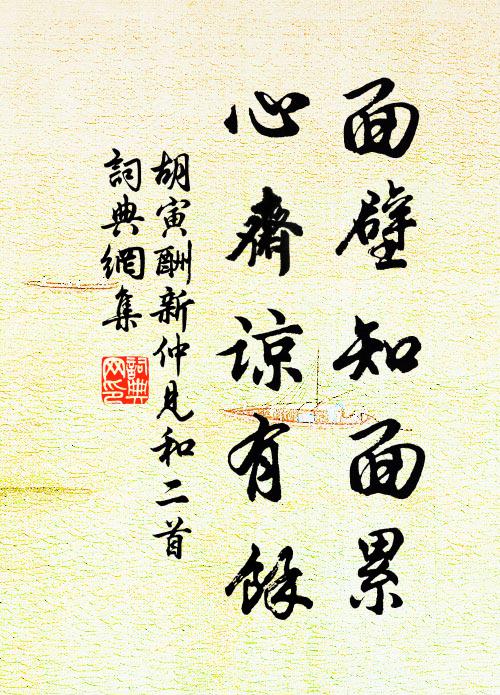 面壁知面累
心齋諒有餘
胡寅酬新仲見和二首
詞典網集
詞典網印